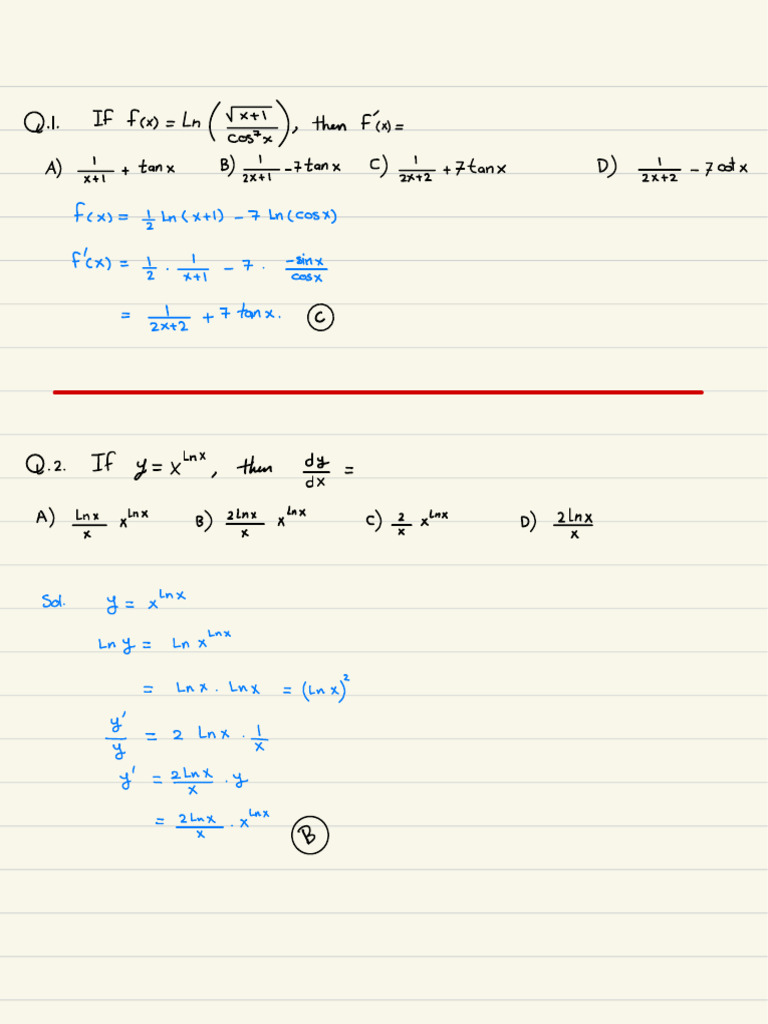 Q.1. If f(x) = Ln (√(x+1) / cos⁷x), then F'(x) =
A) 1/(x+1) + tanx B) 1/(2x+1) - 7tanx C) 1/(2x+2) + 7tanx D) 1/(2x+2) - 7cotx
f(x) = 1/2 Ln(x+1) - 7 Ln(cosx)
F'(x) = 1/2 · 1/(x+1) - 7 · -sinx/cosx
= 1/(2x+2) + 7 tanx. C
Q.2. If y = x^Lnx, then dy/dx =
A) Lnx/x x^Lnx B) 2Lnx/x x^Lnx C) 2/x x^Lnx D) 2Lnx/x
Sol. y = x^Lnx
Ln y = Ln x^Lnx
= Lnx · Lnx = (Lnx)²
y'/y = 2 Lnx · 1/x
y' = 2Lnx/x · y
= 2Lnx/x · x^Lnx B